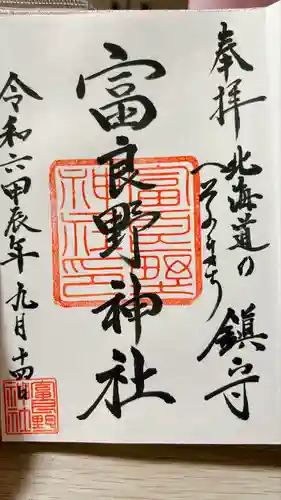 奉拝
北海道の
へそのまち
鎮守
富良野神社
富良野
神社印
令和六甲辰年九月十四日
富良野
神社